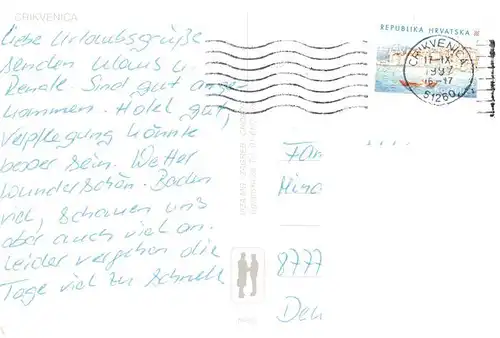 CRIKVENICA
Liebe Urlaubsgrüße
senden Klaus u.
Renate. Sind gut ange-
kommen. Hotel gut,
Verpflegung könnte
besser sein. Wetter
wunderschön. Baden
viel, schauen uns
aber auch viel an.
Leider vergehen die
Tage viel zu schnell
REPUBLIKA HRVATSKA
CRIKVENICA
17-IX
1997
16-17
51260
Fam
8777